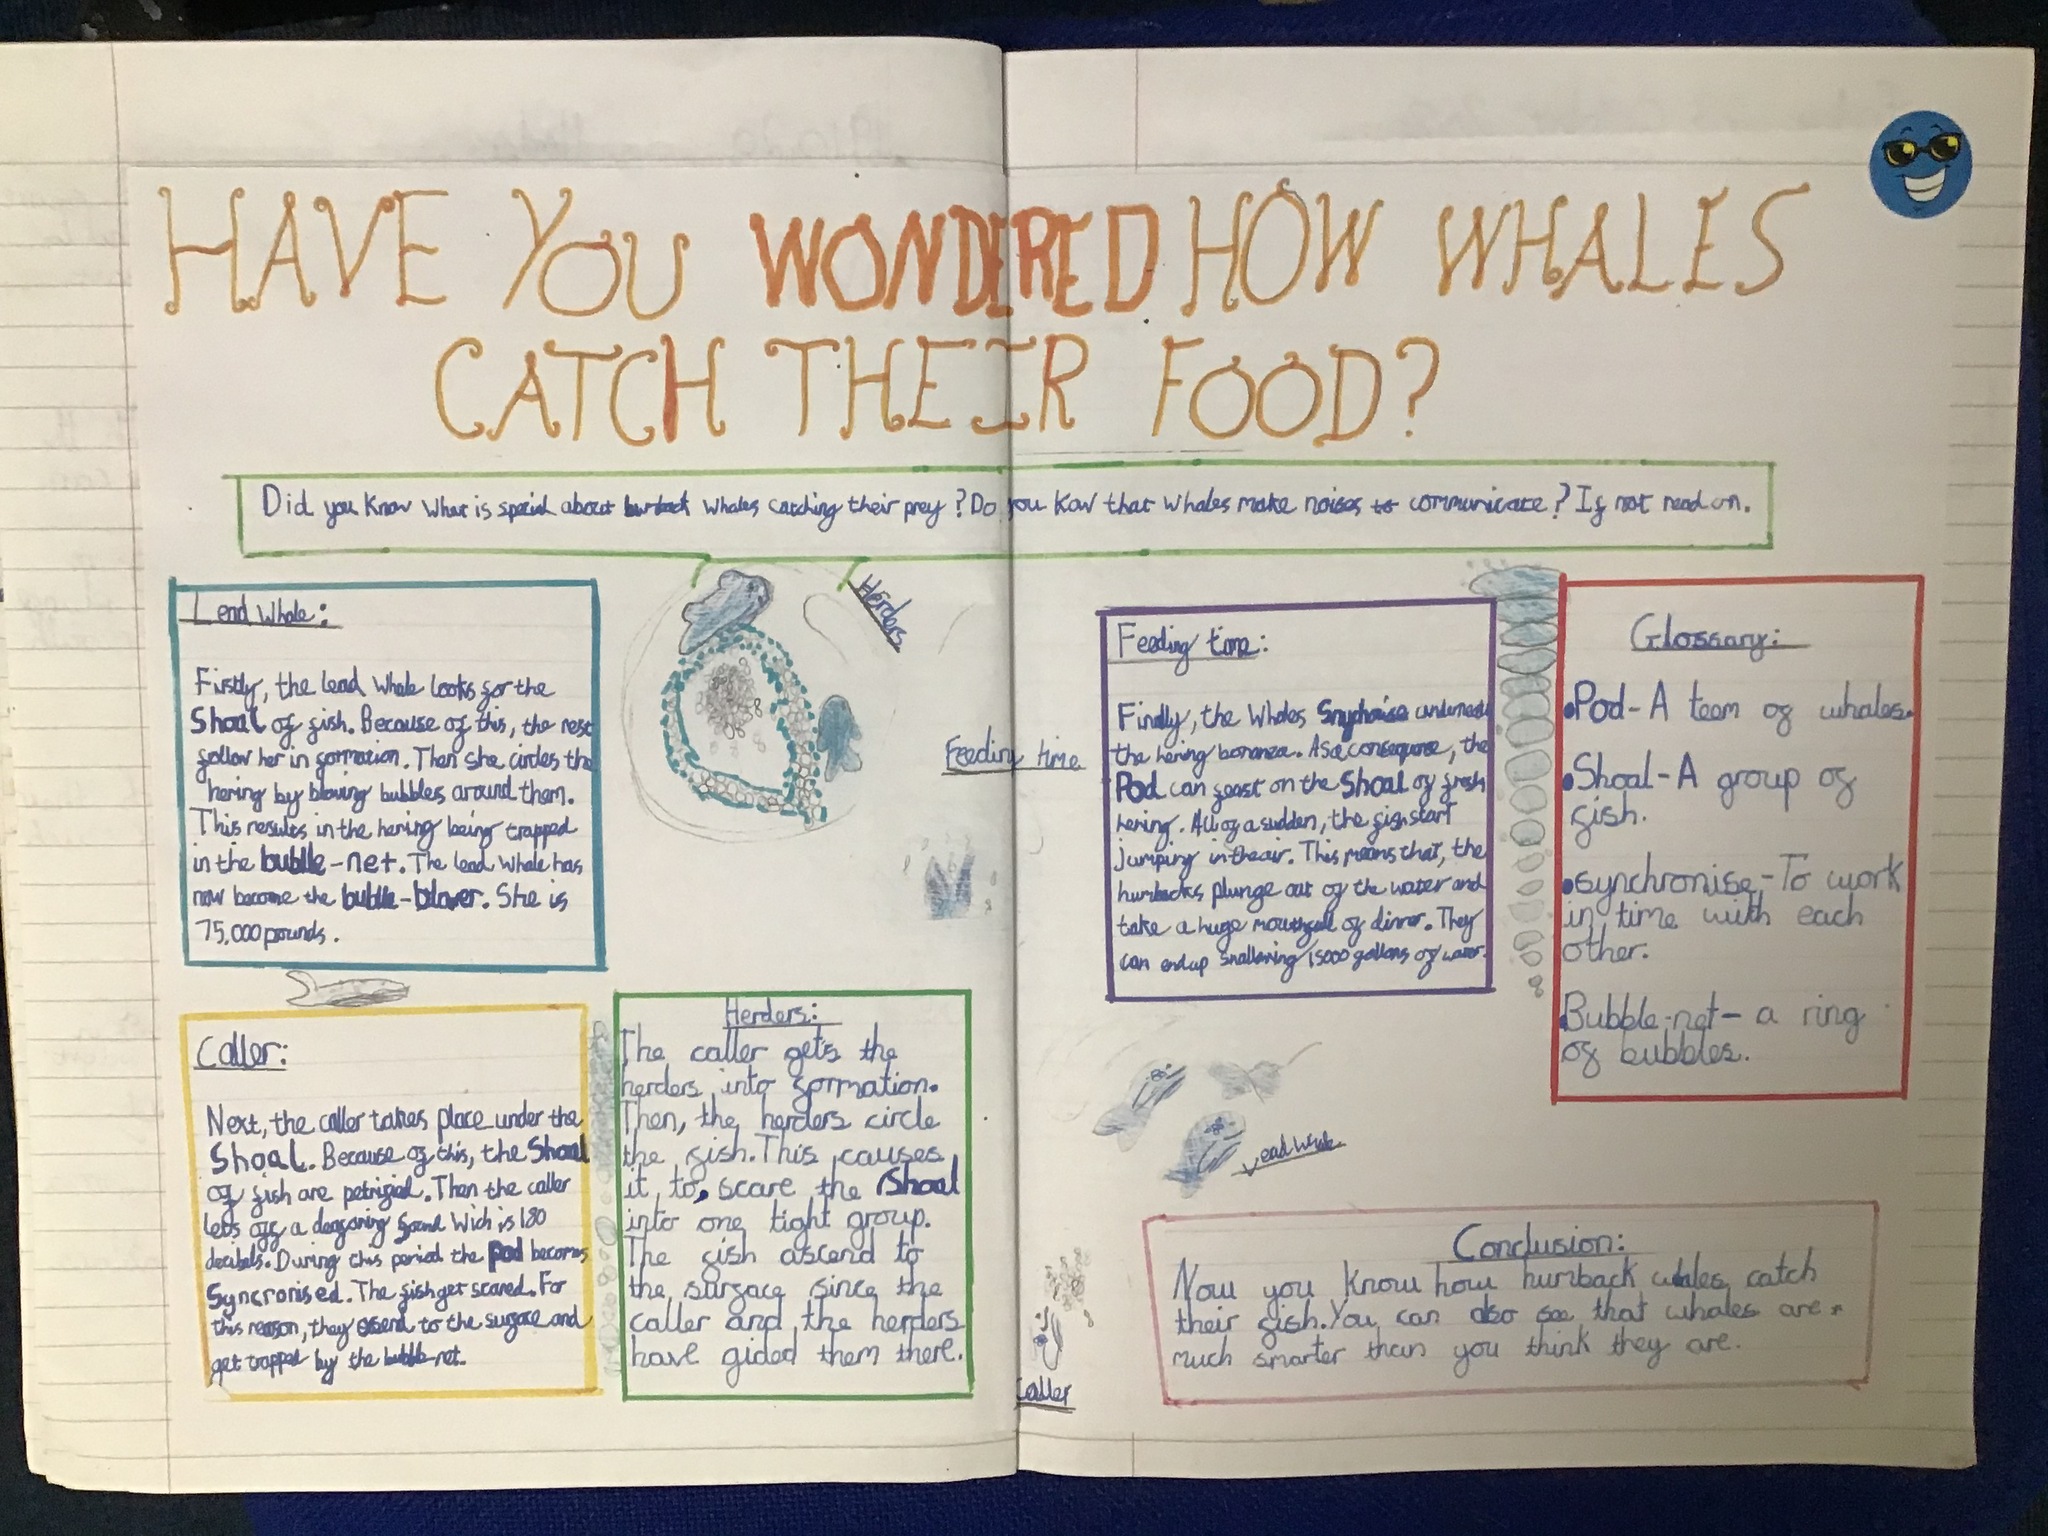 HAVE YOU WONDERED HOW WHALES
CATCH THEIR FOOD?
Did you know what is special about whales catching their prey? Do you kow that whales make noises to communicate? If not read on.
Lead Whale:
Firstly, the lead whale looks for the
Shoal of fish. Because of this, the rest
follow her in formation. Then she circles the
hering by blowing bubbles around them.
This results in the hering being trapped
in the bubble-net. The lead whale has
now become the bubble-blower. She is
75,000 pounds.
Caller:
Next, the caller takes place under the
Shoal. Because of this, the Shoal
of fish are petrified. Then the caller
lets off a deafening sound wich is 180
decibels. During this period the pod becomes
Syncronised. The fish get scared. For
this reason, they asend to the surface and
get trapped by the bubble-net.
Herders:
The caller gets the
herders into formation.
Then, the herders circle
the fish. This causes
it to, scare the Shoal
into one tight group.
The fish ascend to
the surface since the
caller and the herders
have gided them there.
Herders
Feeding time
Caller
Lead Whale
Feeding time:
Finally, the Whales underneath
the hering bonanza. As a consequence, the
Pod can feast on the Shoal of fresh
hering. All of a sudden, the fish start
jumping in the air. This means that, the
humbacks plunge out of the water and
take a huge mouthfull of dinner. They
can end up swallowing 15000 gallons of water.
Glossary:
•Pod- A team of whales.
•Shoal-A group of
fish.
•synchronise,-To work
in time with each
other.
•Bubble-net- a ring
of bubbles.
Conclusion:
Now you know how humback whales catch
their fish. You can also see that whales are
much smarter than you think they are.